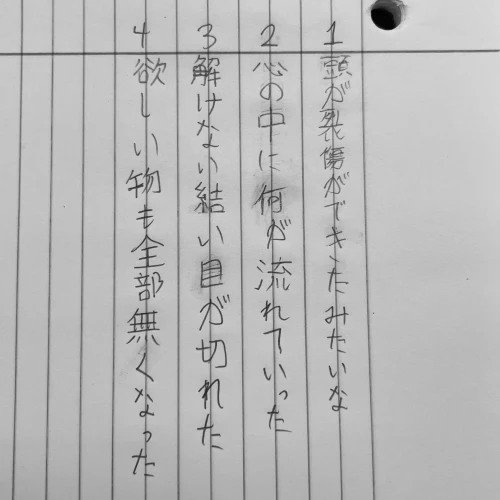 1頭が裂傷ができたみたいな
2心の中に何が流れていった
3解けない結い目が切れた
4欲しい物も全部無くなった